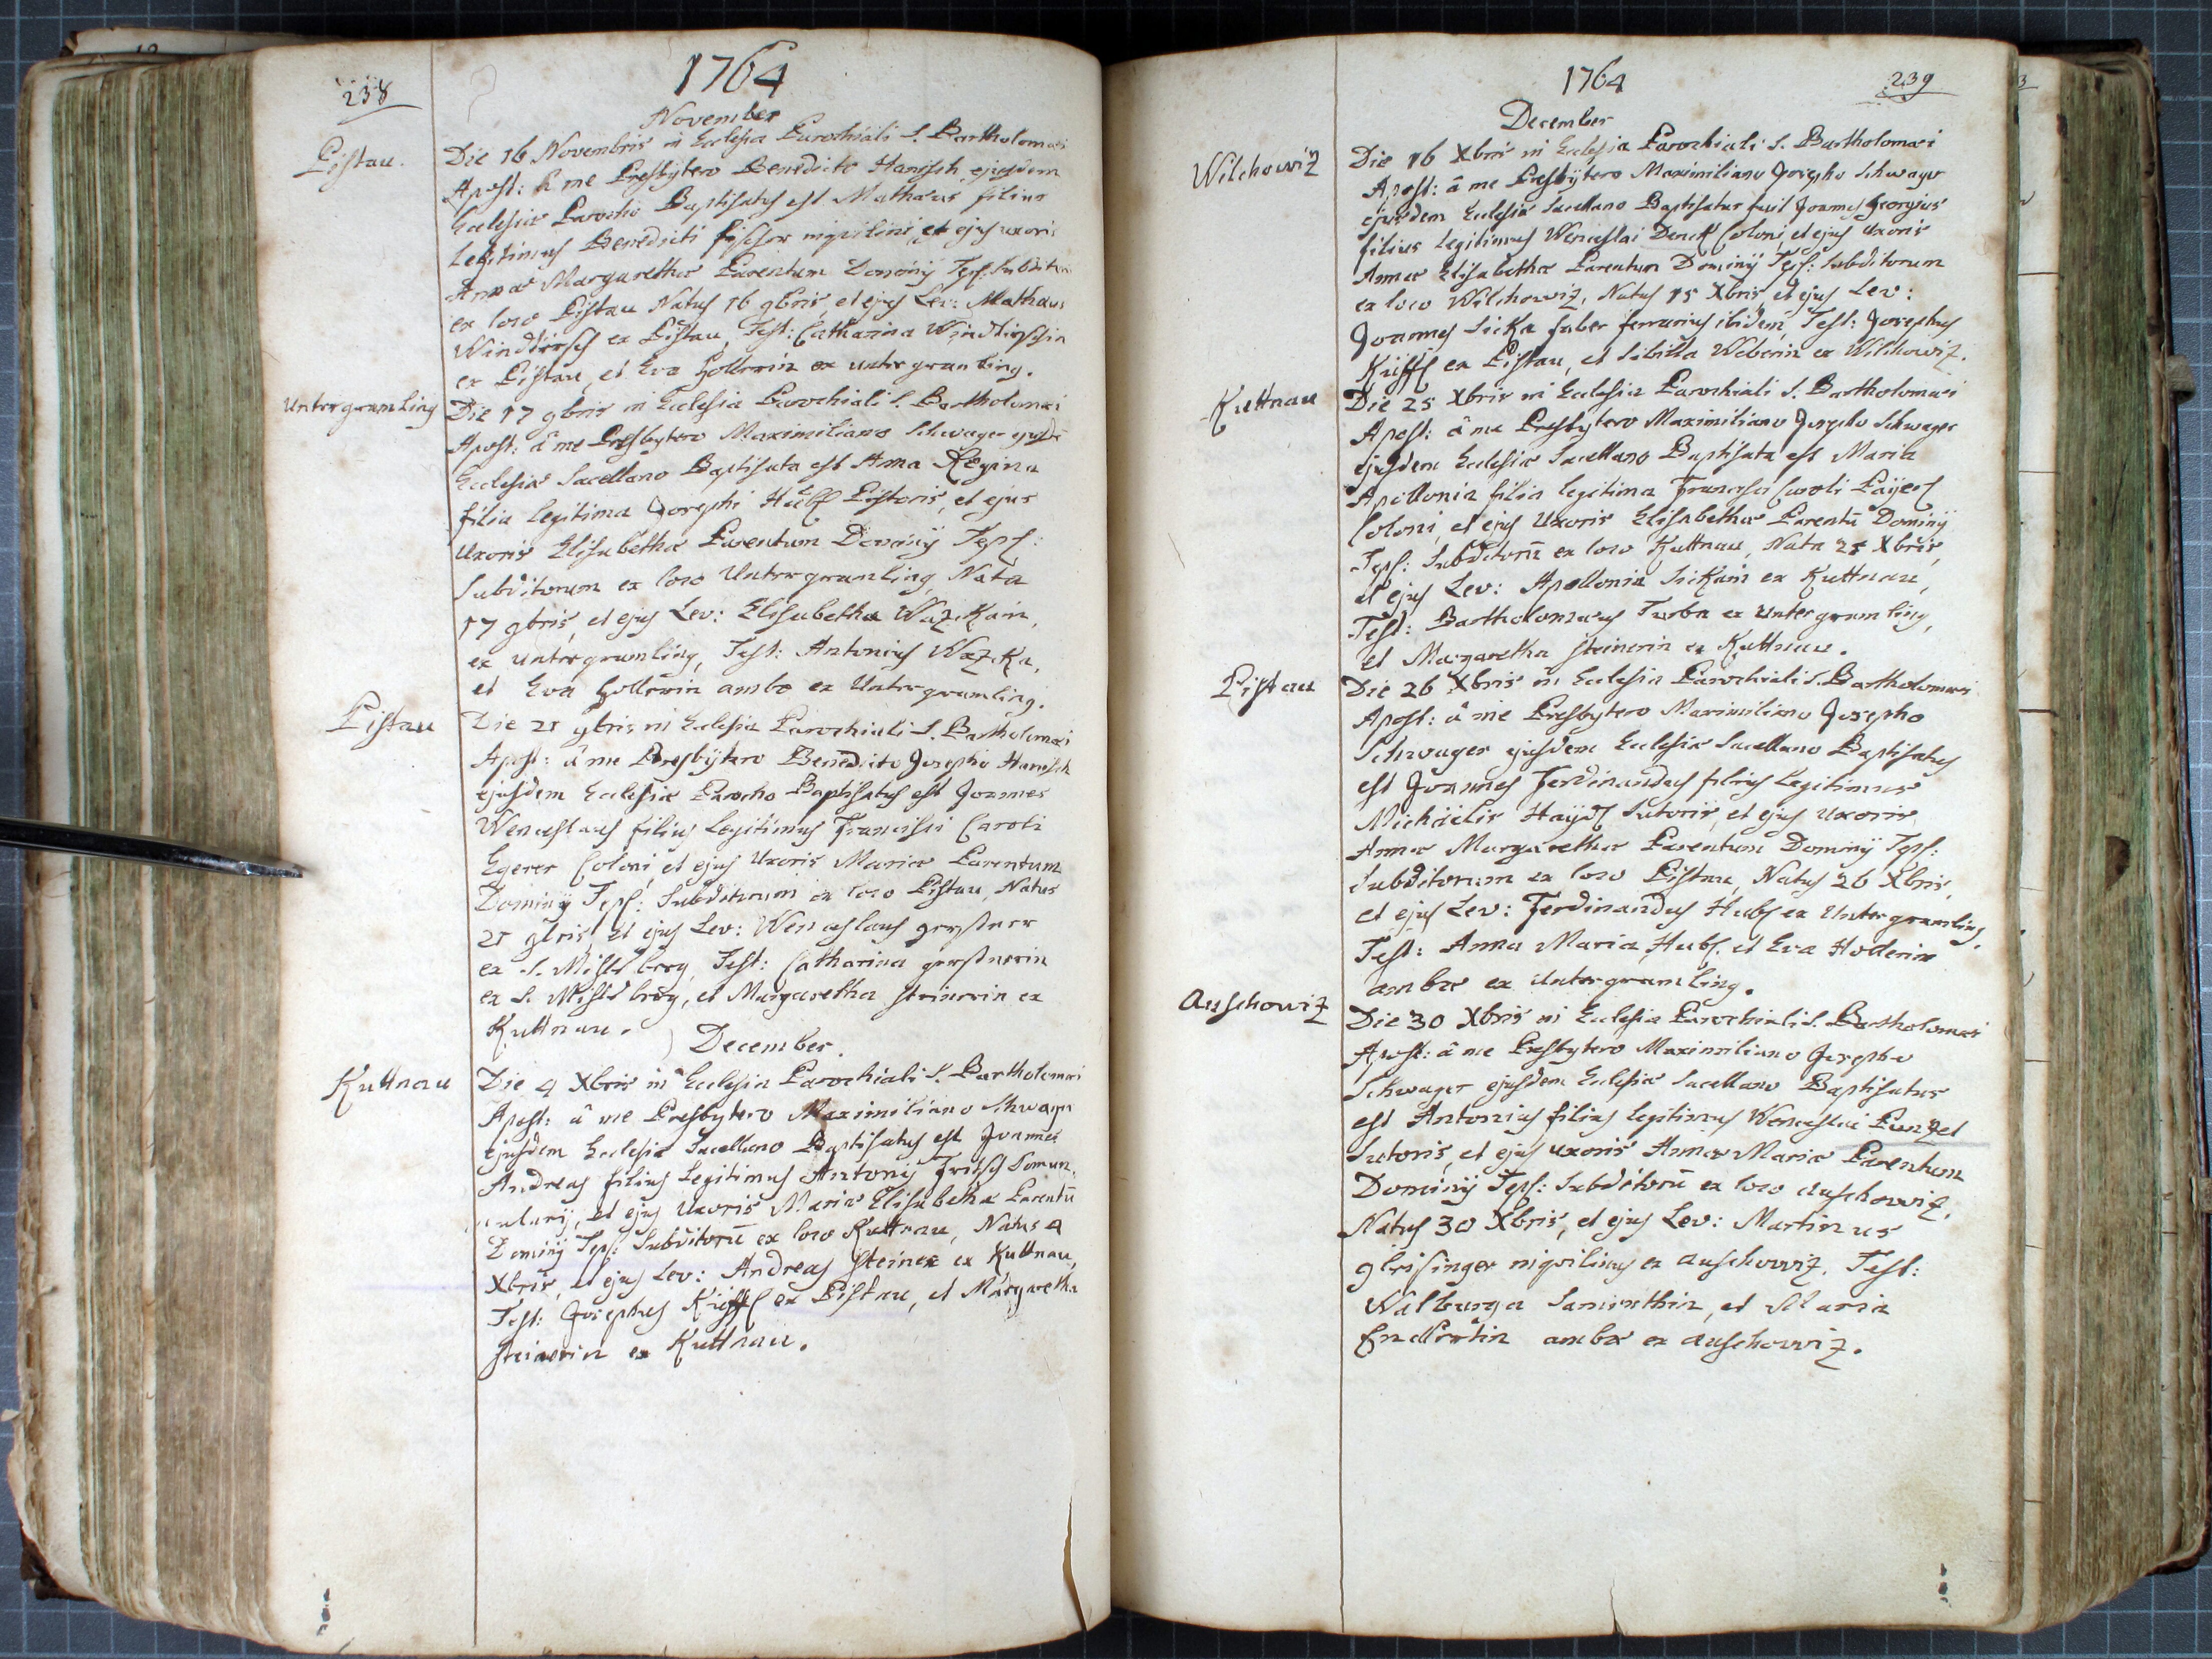 238
1764
November
Pistau.
Die 16 Novembris in Ecclesia Parochiali S. Bartholomæi
Apost: à me Presbytero Benedicto Hanisch ejusdem
Ecclesiæ Parocho Baptisatus est Mathæus filius
Legitimus Benedicti fischer inquilini, et ejus uxoris
Annæ Margarethæ Parentum Dominÿ Tepl: Subditor:
ex loco Pistau Natus 16 9bris, et ejus Lev: Mathæus
Windtirsch ex Pistau, Test: Catharina Windtirschin
ex Pistau, et Eva Hollerin ex untergramling.
Untergramling
Die 17 9bris in Ecclesia Parochiali S. Bartholomæi
Apost: à me Presbytero Maximiliano Schwager ejusdē
Ecclesiæ Sacellano Baptisata est Anna Regina
filia Legitima Josephi Pistoris, et ejus
Uxoris Elisabethæ Parentum Dominÿ Tepl:
Subditorum ex loco Untergramling, Nata
17 9bris, et ejus Lev: Elisabetha Wazkain,
ex untergramling, Test: Antonius Wazka,
et Eva Hollerin ambo ex Untergramling.
Pistau
Die 21 9bris in Ecclesia Parochiali S. Bartholomæi
Apost: à me Presbÿtero Benedicto Josepho Hanisch
ejusdem Ecclesiæ Parocho Baptisatus est Joannes
Wenceslaus filius Legitimus Francisci Caroli
Egerer Coloni, et ejus Uxoris Mariæ Parentum
Dominÿ Tepl: Subditorum ex loco Pistau, Natus
21 9bris, et ejus Lev: Wenceslaus gerstner
ex S. Michlsberg, Test: Catharina gerstnerin
ex S. Michlsberg, et Margaretha Steinerin ex
Kuttnau.
December.
Kuttnau
Die 4 Xbris in Ecclesia Parochiali S. Bartholomæi
Apost: à me Presbytero Maximiliano Schwager
ejusdem Ecclesiæ Sacellano Baptisatus est Joannes
Andreas filius Legitimus Antonÿ Fritsch
et ejus Uxoris Mariæ Elisabethæ Parentū
Dominÿ Tepl: Subditorū ex loco Kuttnau, Natus 4
Xbris, et ejus Lev: Andreas Steiner ex Kuttnau,
Test: Josephus ex Pistau, et Margaretha
Steinerin ex Kuttnau.
1764
239
December
Wilchowiz
Die 16 Xbris in Ecclesia Parochiali S. Bartholomæi
Apost: à me Presbÿtero Maximiliano Josepho Schwager
ejusdem Ecclesiæ Sacellano Baptisatus fuit Joannes Georgius
filius Legitimus Wenceslai Denck Coloni, et ejus Uxoris
Annæ Elisabethæ Parentum Dominÿ Tepl: Subditorum
ex loco Wilchowiz, Natus 15 Xbris, et ejus Lev:
Joannes Sicka faber ferrarius ibidem, Test: Josephus
ex Pistau, et Sibilla Weberin ex Wilchowiz.
Kuttnau
Die 25 Xbris in Ecclesia Parochiali S. Bartholomæi
Apost: à me Presbytero Maximiliano Josepho Schwager
ejusdem Ecclesiæ Sacellano Baptisata est Maria
Apollonia filia Legitima Francisci Caroli Paÿerl
Coloni, et ejus Uxoris Elisabethæ Parentū Dominÿ
Tepl: Subditorū ex loco Kuttnau, Nata 25 Xbris,
et ejus Lev: Apollonia Sickain ex Kuttnau,
Test: Bartholomæus Turba ex untergramling,
et Margaretha Steinerin ex Kuttnau.
Pistau
Die 26 Xbris in Ecclesia Parochiali S. Bartholomæi
Apost: à me Presbytero Maximiliano Josepho
Schwager ejusdem Ecclesiæ Sacellano Baptisatus
est Joannes Ferdinandus filius Legitimus
Michäelis Haÿdl Sutoris, et ejus uxoris
Annæ Margarethæ Parentum Dominÿ Tepl:
Subditorum ex loco Pistau, Natus 26 Xbris,
et ejus Lev: Ferdinandus Hubl ex Untergramling,
Test: Anna Maria Hubl. et Eva Hollerin
ambæ ex Untergramling.
Auschowiz
Die 30 Xbris in Ecclesia Parochiali S. Bartholomæi
Apost: à me Presbytero Maximiliano Josepho
Schwager ejusdem Ecclesiæ Sacellano Baptisatus
est Antonius filius Legitimus Wenceslai Punzel
Sutoris, et ejus uxoris Annæ Mariæ Parentum
Dominÿ Tepl: Subditorū ex loco Auschowiz.
Natus 30 Xbris, et ejus Lev: Martinus
glisinger inquilinus ex Auschowiz. Test:
Walburga et Maria
ambæ ex Auschowiz.